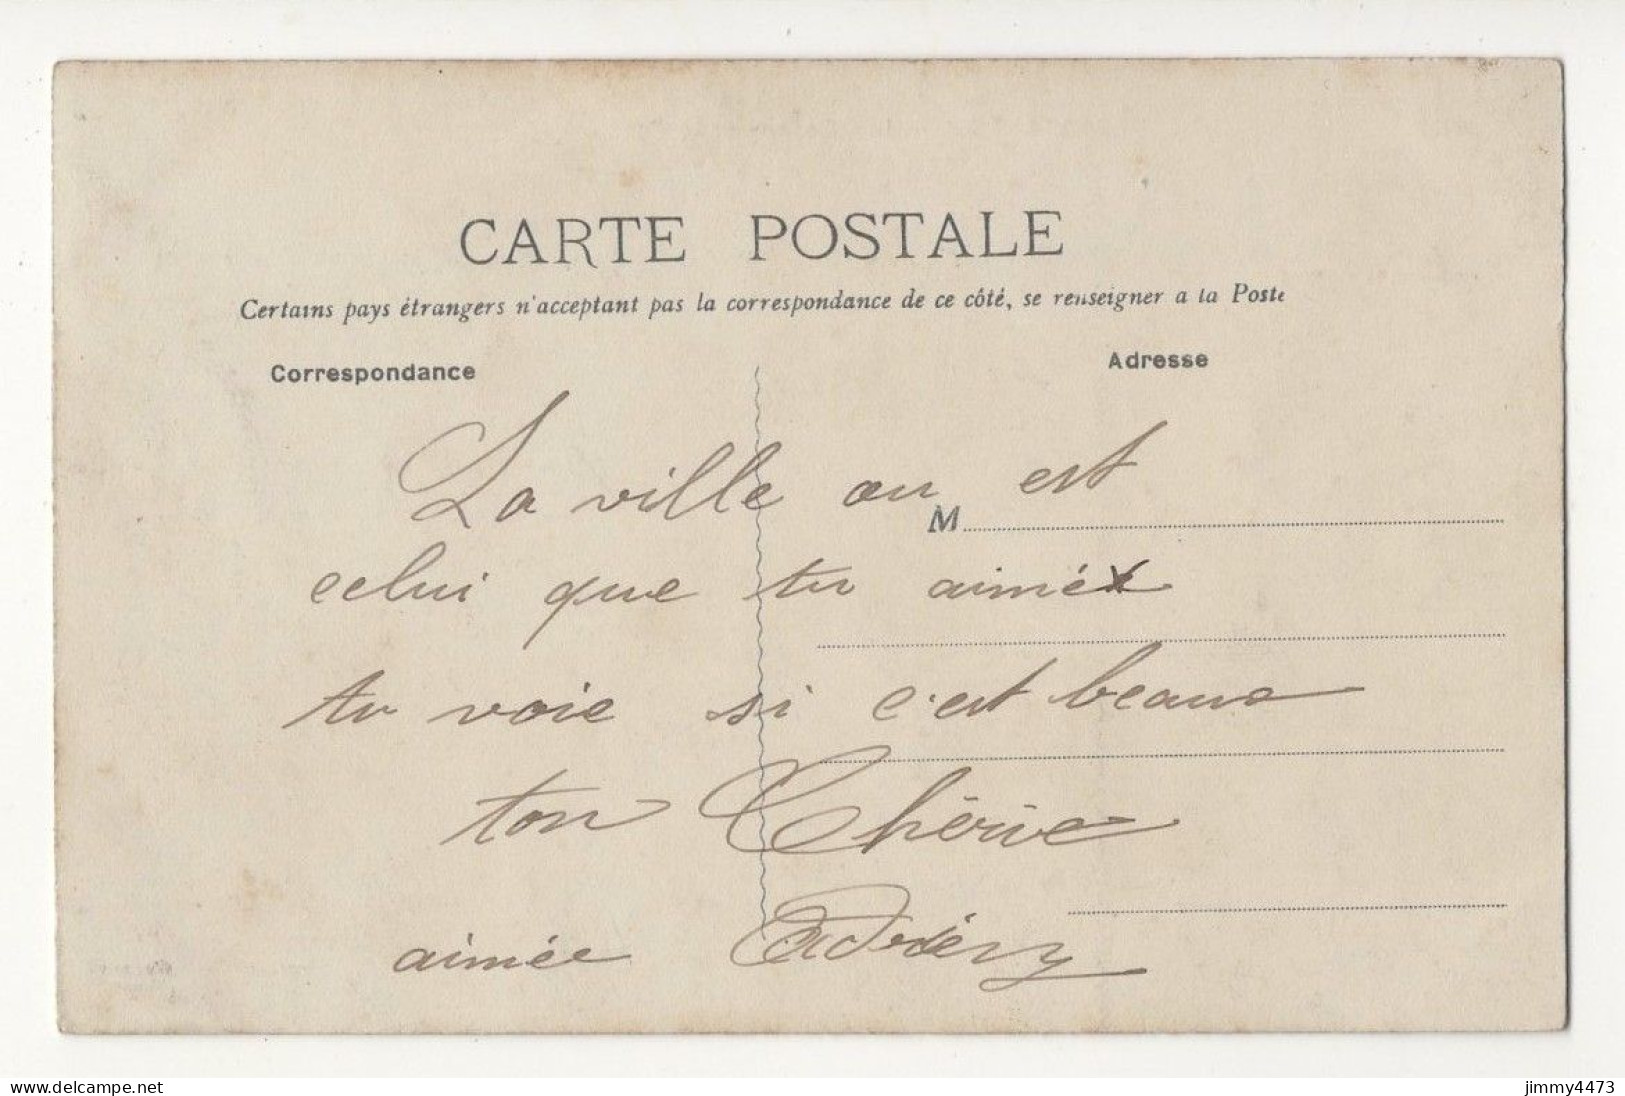 CARTE POSTALE
Certains pays étrangers n'acceptant pas la correspondance de ce côté, se renseigner a la Poste
Correspondance
Adresse
M
La ville ou est
celui que tu aimé
tu voie si c'est beaux
ton Chérie
aimée
www.delcampe.net
jimmy4473